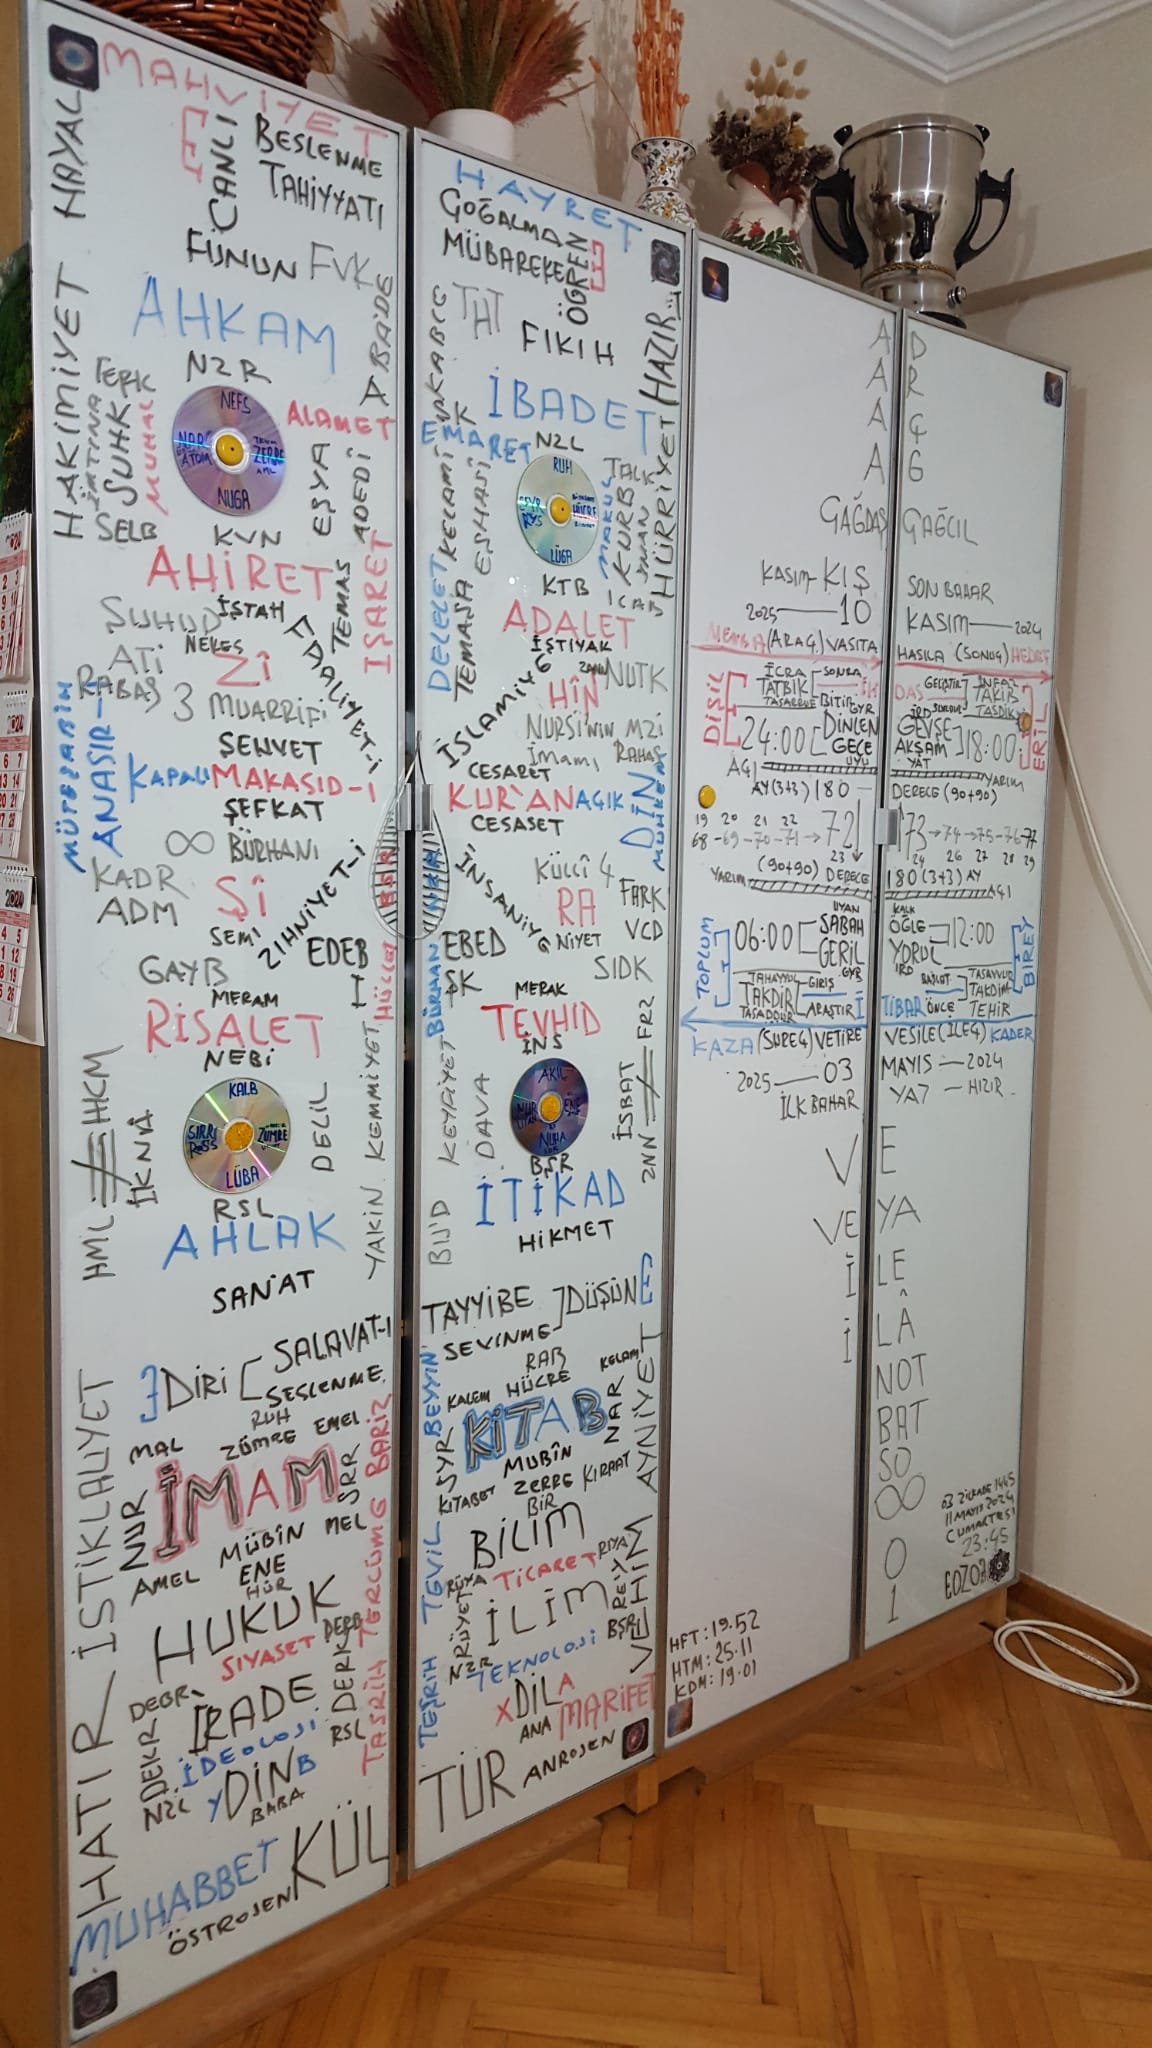 MAHVİYET
HAYAL
E
CANLI
BESLENME
TAHİYYATI
FÜNUN FVK
ABADE
HAKİMİYET
AHKAM
NZR
TERK
İMTİNA
SUHK
MUHAL
SELB
NEFS
ZERRE
ATOM
NUGA
ALAMET
EŞYA
ADEDİ
KVN
AHİRET
İŞTAH
TEMAS
İŞARET
ŞUHUD
NEKES
ATİ
Zİ
FAALİYET-İ
RABAŞ
3 MUARRİF
MÜTEŞABİH
ANASIR-I
ŞEHVET
KAPALI MAKASID-I
ŞEFKAT
∞ BÜRHANI
KADR
ADM
Şİ
SEMİ
ZİHNİYET-İ
EDEB
İ
GAYB
MERAM
RİSALET
NEBİ
KALB
SIRRI
ZÜMRE
LÜBA
HML
HKM
İKNÂ
DELİL
YAKİN
KEMMİYET
HÜCCET
RSL
AHLAK
SAN'AT
DİRİ
SALAVAT-I
SESLENME
İSTİKLALİYET
MAL
RUH
ZÜMRE EMEL
İMAM
NUR
SRR
MÜBİN MEL
AMEL ENE
HÜR
TASRİH TERCÜME BARİZ
HUKUK
SİYASET
DEBR
İRADE
DERK
RSL
DEKR
İDEOLOJİ
NZL
YDİNB
BABA
HATIR
MUHABBET
KÜL
ÖSTROJEN
HAYRET
ÇOĞALMA
MÜBAREKE
ÖĞREN
E
THT
FIKIH
HAZIR
İBADET
EMARET
NZL
RUH
HÜCRE
LÜGA
MAKUL
KURB
HÜRRİYET
KELAMİ
EŞHASİ
KTB
İCAB
DELALET
TEMAŞA
ADALET
İŞTİYAK
NUTK
HİN
İSLAMİYE
NURSİ'NİN MZİ
İMAMI RAHAŞ
CESARET
KUR'AN AÇIK
CESASET
DİN
MUHKEM
BŞR
NZR
İNSANİYE
KÜLLÎ 4
RA
FARK
VCD
NİYET
EBED
ŞK
SIDK
BÜRHAN
MERAK
TEVHİD
İNS
AKIL
NUR
ENE
NUHA
BŞR
FRZ
ZNN
İSBAT
KEYFİYET
DAVA
İTİKAD
HİKMET
TAYYİBE
SEVİNME
DÜŞÜNE
BEYYİN
RAB
KELAM
KALEM HÜCRE
KİTAB
NAR
AYNİYET
SYR
MUBÎN
KİTABET ZERRE KIRAAT
BİR
BİLİM
TEVİL
RÜYA TİCARET RİYA
RÜYET
İLİM
REY
BŞR
VEHİM
NZR
TEKNOLOJİ
TEŞRİH
XDİLA
ANA
MARİFET
TÜR
ANROJEN
A D
A R
A Ç
A G
ÇAĞDAŞ ÇAĞCIL
KASIM KIŞ
SON BAHAR
2025 — 10
KASIM — 2024
MENBA (ARAÇ) VASITA
HASILA (SONUÇ) HEDEF
DİŞİL
İCRA
TATBİK
TASARRUF
SONRA
BİTİR GYR
24:00
DİNLEN
GECE
UYU
DAS
GELİŞTİR
SÜRDÜR
İNFAZ
TAKİB
TASDİK
ERİL
GEVŞE
AKŞAM
YAT
18:00
AÇI
YARIM
AY(3+3) 180
DERECE (90+90)
19 20 21 22
68 - 69 - 70 - 71 → 72
23
73 → 74 → 75 - 76 - 77
24 26 27 28 29
(90+90) DERECE
YARIM
180 (3+3) AY
AÇI
TOPLUM
06:00
UYAN
SABAH
GERİL
GYR
KALK
ÖĞLE
YORUL
İRD
12:00
BİREY
TAHAYYÜL
TAKDİR
TASAVVUR
GİRİŞ
ARAŞTIR
İ
TİBAR
BAŞLAT
ÖNCE
TASAVVUR
TAKDİM
TEHİR
KAZA (SÜREÇ) VETİRE
VESİLE (İLEÇ) KADER
2025 — 03
MAYIS — 2024
İLK BAHAR
YAZ — HIZIR
V E
VE YA
İ LE
İ LÂ
NOT
BAT
SO
∞
0
1
03 ZİLKADE 1445
11 MAYIS 2024
CUMARTESİ
23:45
HFT: 19.52
HTM: 25.11
KDM: 19.01